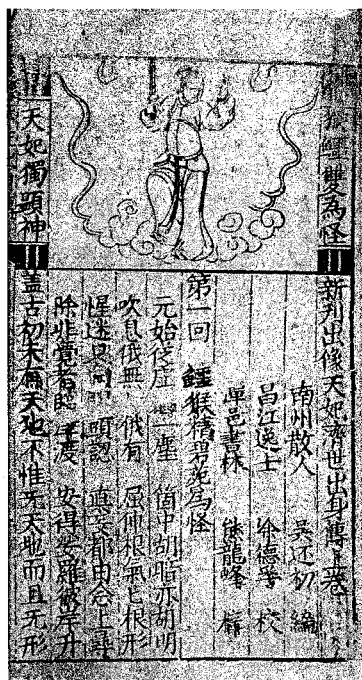 猴鱷雙為怪
天妃獨顯神
新刊出像天妃濟世出身傳上卷
南州散人 吳还初 編
昌江逸士 余德孚 校
潭邑書林 熊龍峰 梓
第一回 鱷猴精碧苑為怪
元始從虛 一塵 箇中胡暗亦胡明
吹息俄無 俄有 屈伸根氣七根形
惺迷 頭認 真妄都由念上尋
除非 者能 渡 安得 羅彼岸升
盖古初未有天地不惟无天地而且无形